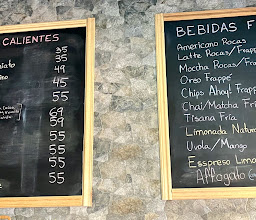 CALIENTES
35
35
49
45
55
69
59
55
55
55
55
BEBIDAS F
Americano Rocas
Latte Rocas/Frapp
Moccha Rocas/Fra
Oreo Frappé
Chips Ahoy! Frapp
Chai/Matcha Fr
Tisana Fría
Limonada Natur
Uvola/Mango
Esspreso Limo
Affogato